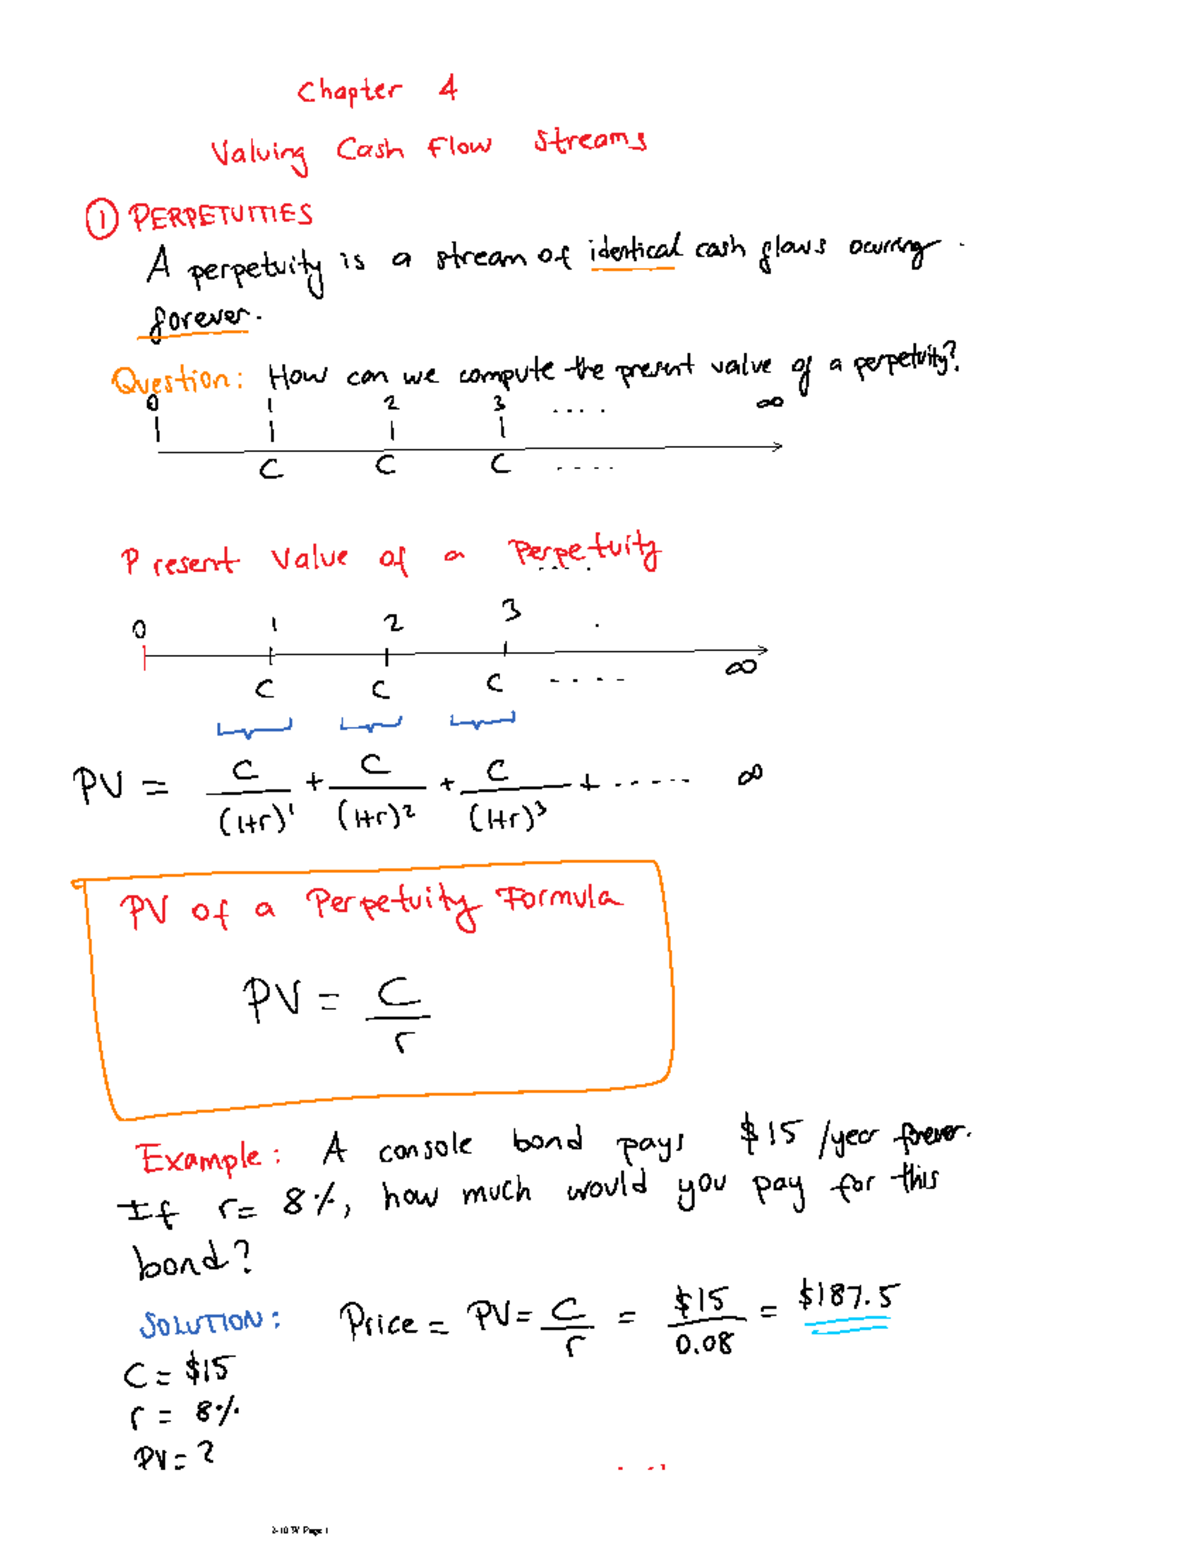 Chapter 4
Valuing Cash Flow Streams
① PERPETUITIES
A perpetuity is a stream of identical cash flows ocurring
forever.
Question: How can we compute the present value of a perpetuity?
0 1 2 3 .... ∞
C C C ....
Present Value of a Perpetuity
0 1 2 3
C C C .... ∞
PV = C/(1+r)¹ + C/(1+r)² + C/(1+r)³ + ..... ∞
PV of a Perpetuity Formula
PV = C/r
Example: A console bond pays $15/year forever.
If r= 8%, how much would you pay for this
bond?
SOLUTION: Price = PV = C/r = $15/0.08 = $187.5
C = $15
r = 8%
PV = ?
2-10 W Page 1